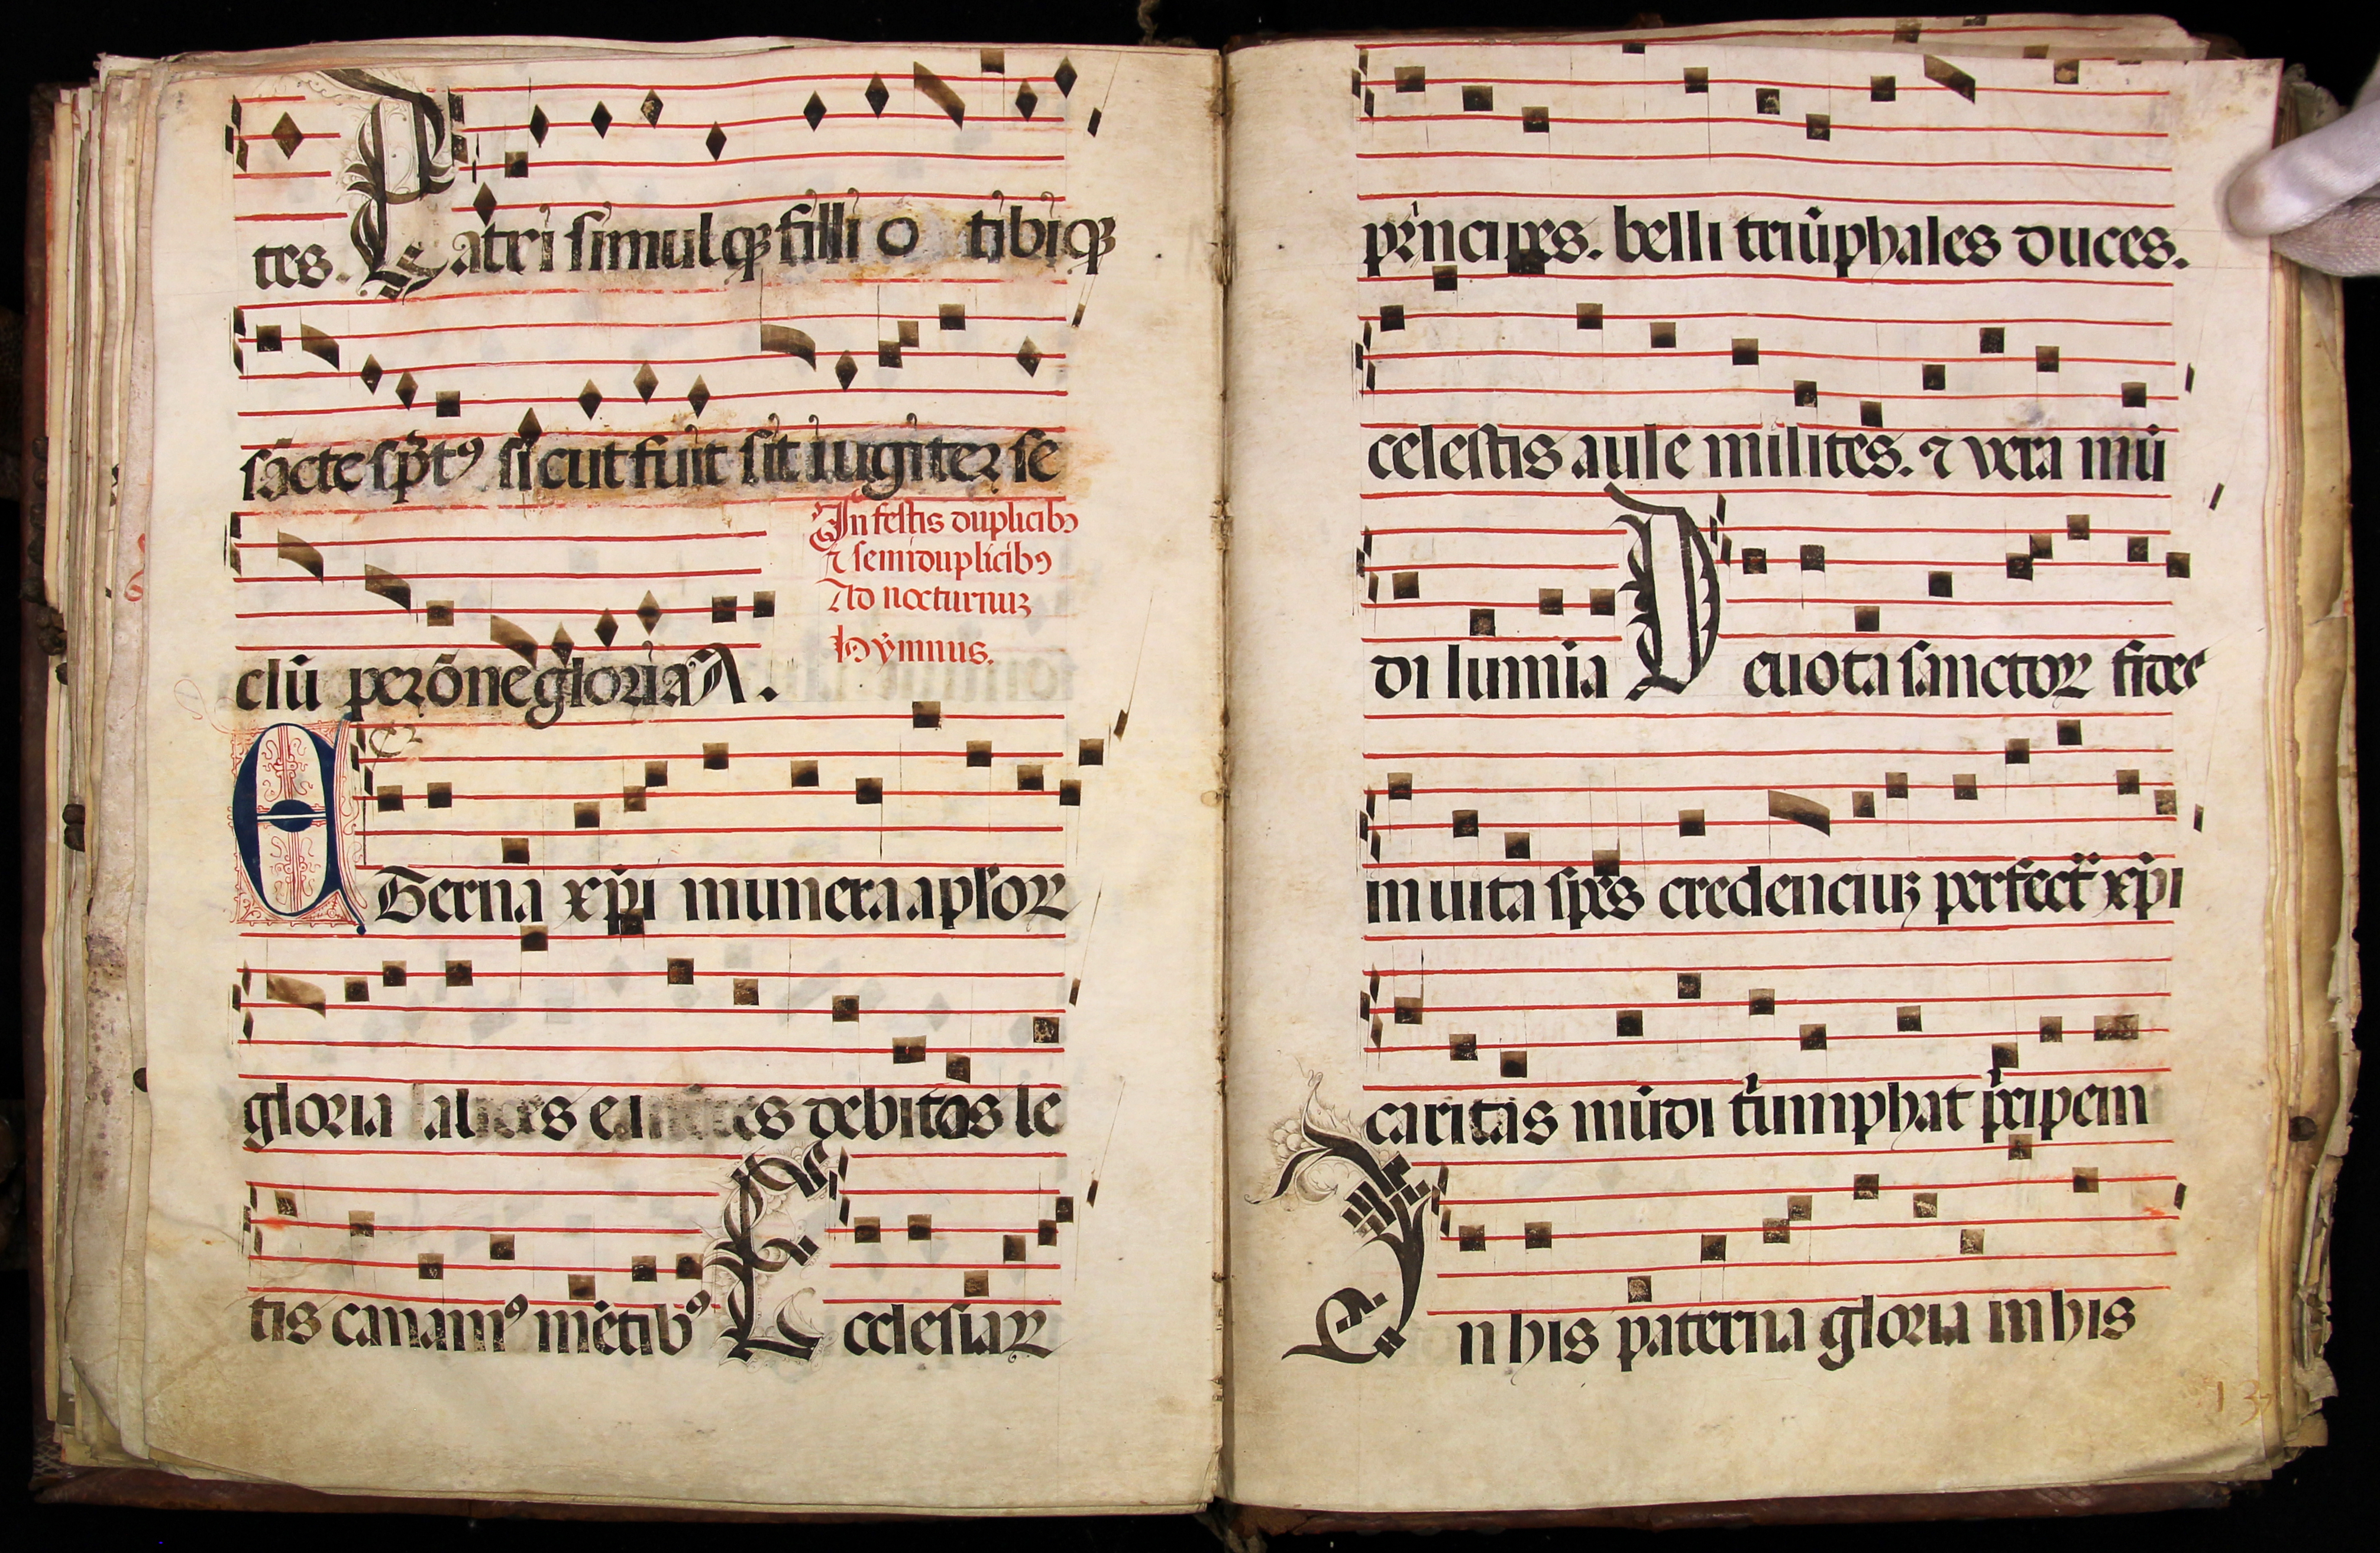 tes. Patri simulqꝫ filli o tibiqꝫ
sācte sp̄tꝰ sicut fuit sit iugiter se
In festis duplicibꝰ
⁊ semiduplicibꝰ
Ad nocturnuꝫ
Hÿmnus.
clū per ōne gloriā A.
Eterna xp̄i munera aplōꝝ
gloria debitas le
tis canamꝰ mētibꝰ Ecclesiaꝝ
prīncipes. belli triūphales duces.
celestis aule milites. ⁊ vera mū
di lumia Deuota sanctoꝝ fides
inuita spes credenciuꝫ perfecta xp̄i
caritas mūdi triumphat prīcipem
In his paterna gloria in his